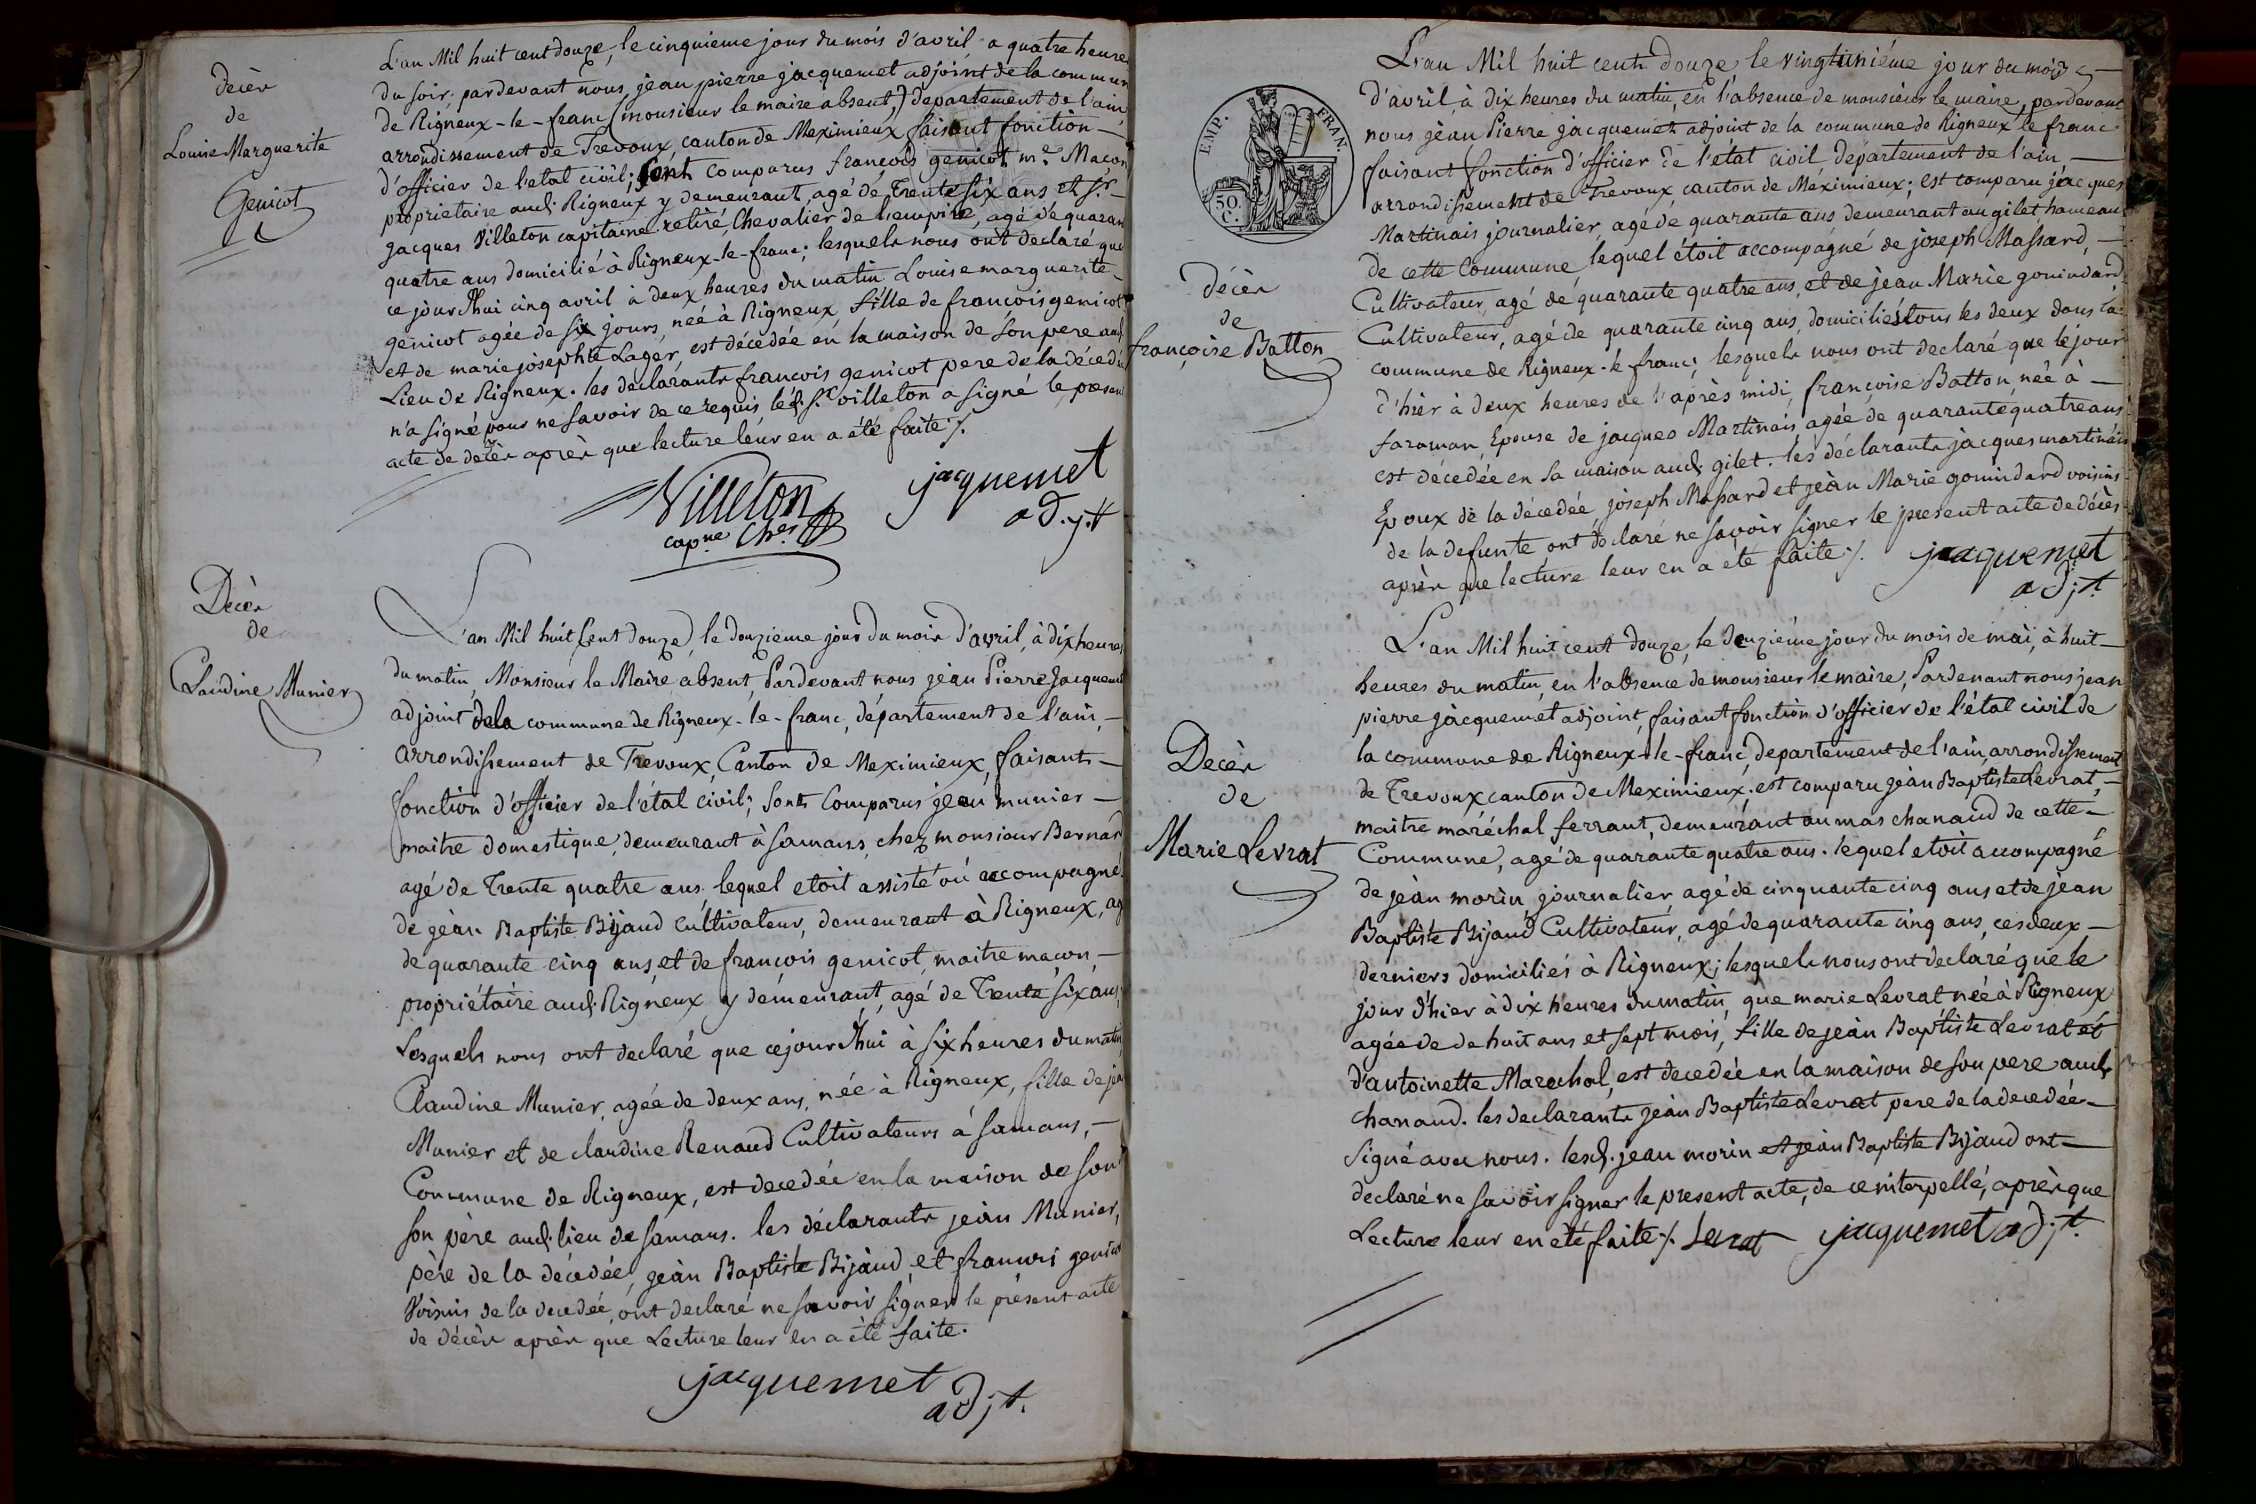 Décès
de
Louise Marguerite
Genicot
L'an Mil huit cent douze, le cinquieme jour du mois d'avril a quatre heure
du soir, pardevant nous, jean pierre jacquemet adjoint de la commun
de Rigneux-le-franc (monsieur le maire absent,) departement de l'ain,
arrondissement de Trevoux, canton de Meximieux faisant fonction —
d'officier de l'etat civil; sont comparus françois genicot, me Maçon
proprietaire aud. Rigneux y demeurant, agé de Trente six ans et sr.
jacques Villeton capitaine retiré, Chevalier de l'empire, agé de quaran
quatre ans domicilié à Rigneux-le-franc; lesquels nous ont declaré que
ce jourd'hui cinq avril à deux heures du matin Louise marguerite
genicot agée de six jours, née à Rigneux fille de françois genicot
et de marie josephte Lager, est décedée en la maison de son pere aud.
Lieu de Rigneux. les declarants françois genicot pere de la décedée
n'a signé pour ne savoir de ce requis, led. sr. villeton a signé le presen
acte de décès après que lecture leur en a été faite ./.
Villeton
capne Cher
jacquemet
adjt
Décès
de
Claudine Munier
L'an Mil huit Cent Douze, le douzieme jour du mois d'avril, à dix heures
du matin, Monsieur le Maire absent, Pardevant nous jean Pierre Jacquemet
adjoint de la commune de Rigneux-le-franc, département de l'ain, —
arrondissement de Trevoux, Canton de Meximieux, faisant —
fonction d'officier de l'état civil; sont Comparus jean munier —
maitre domestique, demeurant à samans, chez monsieur Bernard
agé de Trente quatre ans. lequel etoit assisté ou accompagné
de jean Baptiste Bijaud Cultivateur, demeurant à Rigneux, ag
de quarante cinq ans, et de françois genicot, maitre maçon, —
propriétaire aud. Rigneux y demeurant, agé de Trente six ans,
Lesquels nous ont declaré que cejourd'hui à six heures du matin,
Claudine Munier, agée de deux ans, née à Rigneux, fille de jea
Munier et de claudine Renaud Cultivateurs à samans, —
Commune de Rigneux, est decedée en la maison de son
son père aud. lieu de samans. les déclarants jean Munier,
père de la décedée, jean Baptiste Bijaud et francois genico
Voisins de la decedée, ont declaré ne savoir signer le présent acte
de décès après que Lecture leur en a été faite.
jacquemet
adjt.
EMP. FRAN.
50.
C.
décès
de
françoise Batton
L'an Mil huit cent douze, le vingtunième jour du mois —
d'avril à dix heures du matin, en l'absence de monsieur le maire, pardevant
nous jean Pierre jacquemet adjoint de la commune de Rigneux le franc
faisant fonction d'officier de l'état civil departement de l'ain, —
arrondissement de Trevoux canton de Méximieux; est comparu jacques
Martinais journalier, agé de quarante ans demeurant au gilet hameau
de cette Commune, lequel étoit accompagné de joseph Massard, —
Cultivateur, agé de quarante quatre ans, et de jean Marie gonindard
Cultivateur, agé de quarante cinq ans, domiciliés tous les deux dans la
commune de Rigneux-le-franc; lesquels nous ont declaré que le jour
d'hier à deux heures de l'après midi, françoise Batton, née à —
faraman, Epouse de jacques Martinais agée de quarante quatre ans
est décedée en sa maison aud. gilet. les déclarants jacques martinais
Epoux de la décedée joseph Massard et jean Marie gonindard voisins
de la defunte, ont declaré ne savoir signer le present acte de décès
après que lecture leur en a été faite ./.
jacquemet
adjt.
Decès
de
Marie Levrat
L'an Mil huit cent douze, le deuxième jour du mois de mai, à huit —
heures du matin, en l'absence de monsieur le maire, Pardevant nous jean
pierre jacquemet adjoint, faisant fonction d'officier de l'état civil de
la commune de Rigneux-le-franc, departement de l'ain, arrondissement
de Trevoux canton de Meximieux. est comparu jean Baptiste Levrat, —
maitre maréchal ferrant, demeurant au mas chanaud de cette —
Commune, agé de quarante quatre ans. lequel etoit accompagné
de jean morin, journalier agé de cinquante cinq ans et de jean
Baptiste Bijaud Cultivateur, agé de quarante cinq ans, ces deux —
derniers domiciliés à Rigneux; lesquels nous ont declaré que le
jour d'hier à dix heures du matin, que marie Levrat née à Rigneux
agée de de huit ans et sept mois, fille de jean Baptiste Levrat et
d'antoinette Marechal, est decedée en la maison de son pere aud.
chanaud. les declarants jean Baptiste Levrat pere de la decedée —
signé avec nous. lesd. jean morin et jean Baptiste Bijaud ont —
declaré ne savoir signer le present acte, de ce interpellé, après que
Lecture leur en été faite ./. Levrat jacquemet adjt.